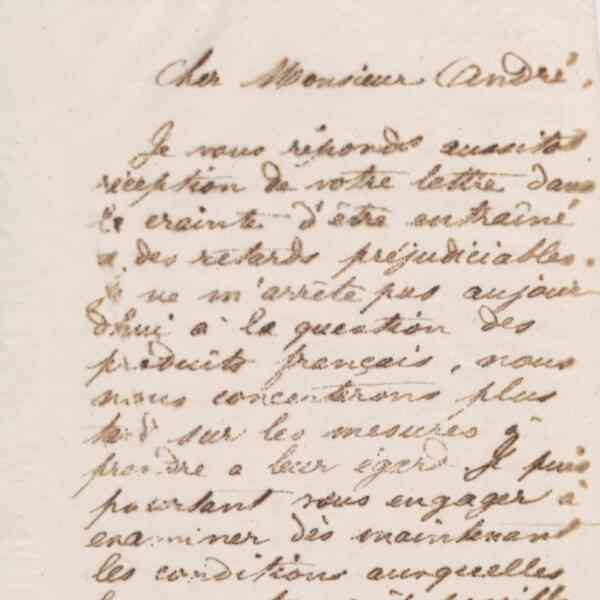 Cher Monsieur André,
Je vous réponds aussitot
réception de votre lettre dans
la crainte d'être entraîné
a des retards préjudiciables.
Je ne m'arrête pas aujour
d'hui à la question des
produits français, nous
nous concerterons plus
tard sur les mesures à
prendre a leur égard. Je puis
pourtant vous engager à
examiner dès maintenant
les conditions auxquelles